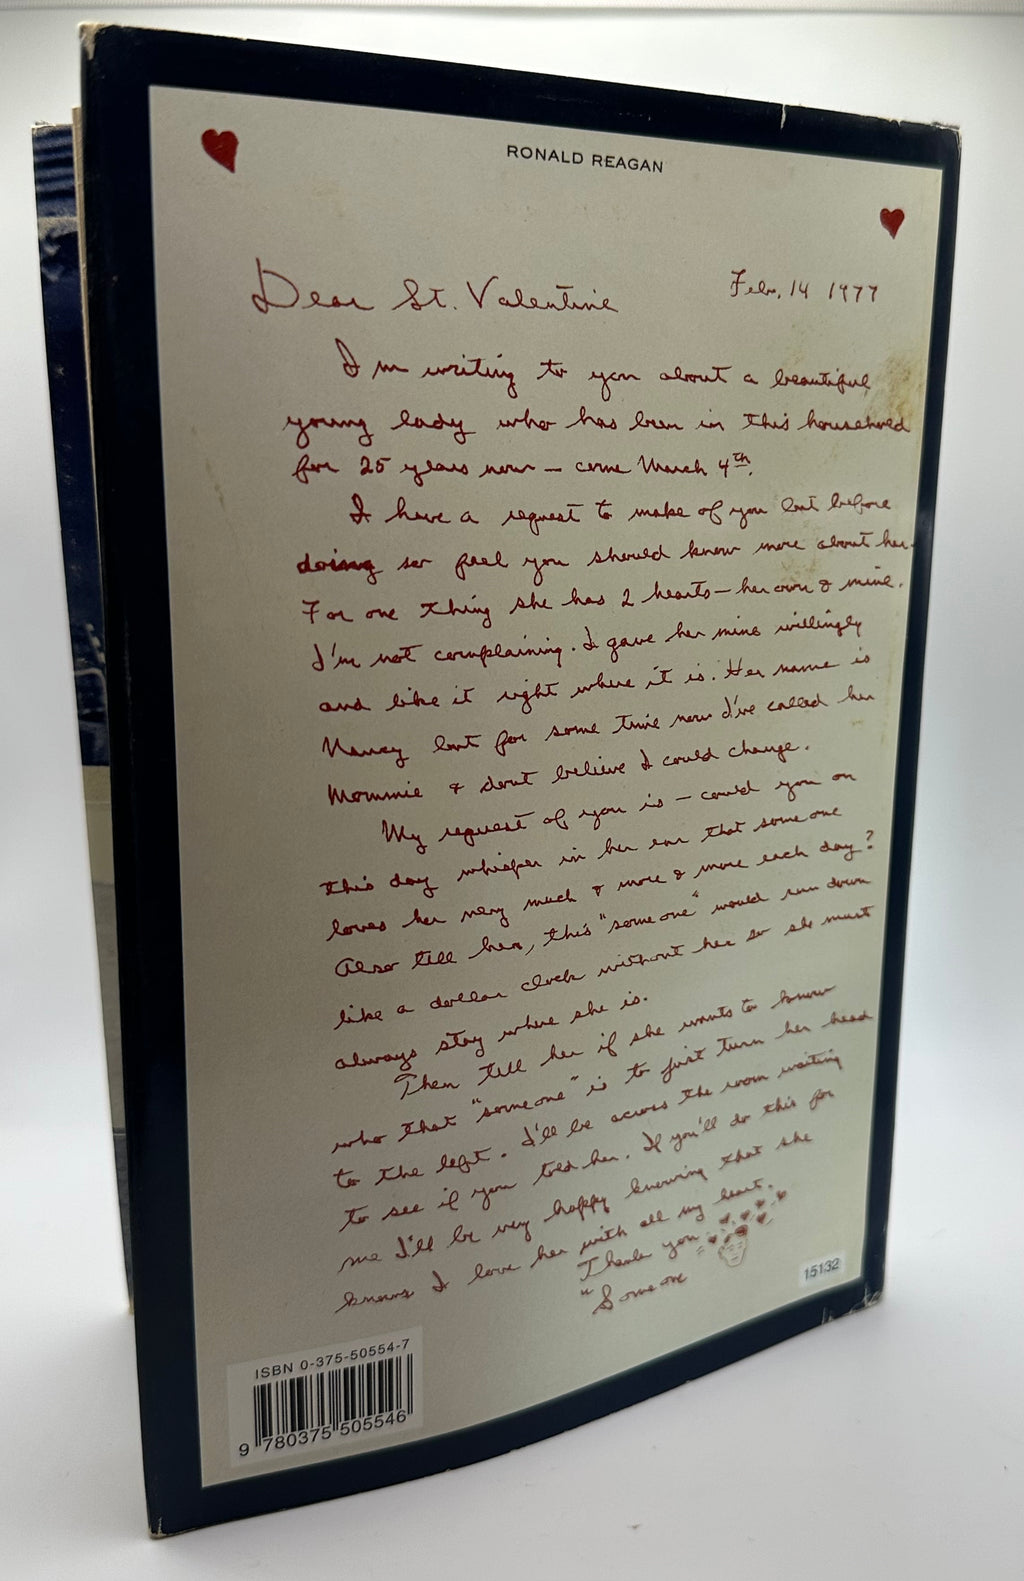 RONALD REAGAN
Feb. 14 1977
Dear St. Valentine
I'm writing to you about a beautiful
young lady who has been in this household
for 25 years now — come March 4th.
I have a request to make of you but before
doing so feel you should know more about her.
For one thing she has 2 hearts — her own & mine.
I'm not complaining. I gave her mine willingly
and like it right where it is. Her name is
Nancy but for some time now I've called her
Mommie & don't believe I could change.
My request of you is — could you on
this day whisper in her ear that someone
loves her very much & more & more each day?
Also tell her, this "someone" would run down
like a dollar clock without her so she must
always stay where she is.
Then tell her if she wants to know
who that "someone" is to just turn her head
to the left. I'll be across the room waiting
to see if you told her. If you'll do this for
me I'll be very happy knowing that she
knows I love her with all my heart.
Thank you
"Someone
15132
ISBN 0-375-50554-7
9 780375 505546